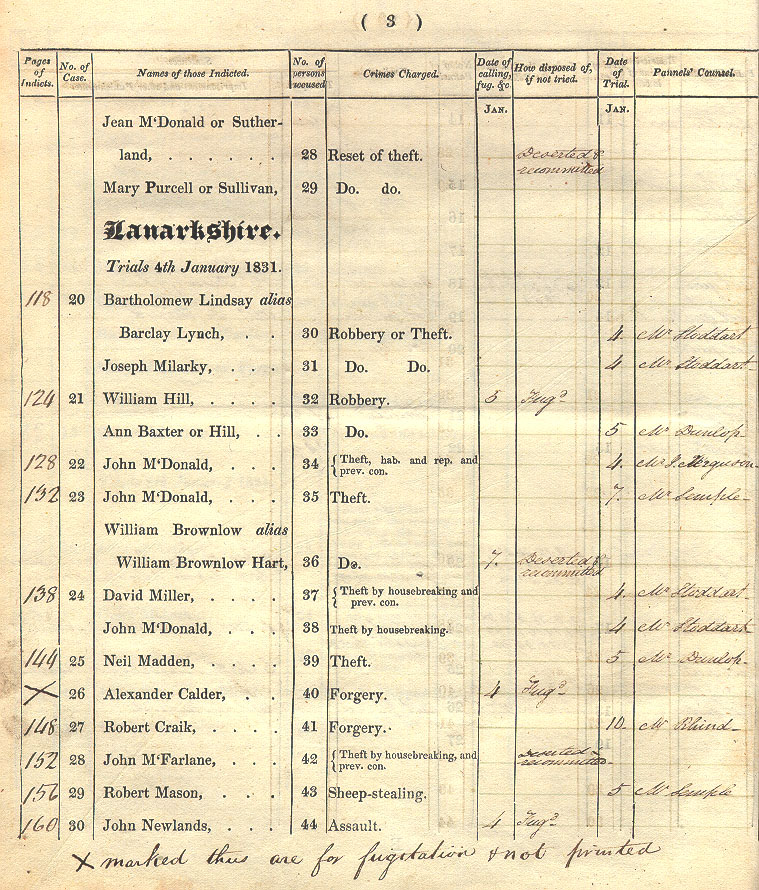 ( 3 )
Pages of Indicts. No. of Case. Names of those Indicted. No. of persons accused Crimes Charged. Date of calling, fug. &c. How disposed of, if not tried. Date of Trial. Pannels' Counsel.
JAN. JAN.
Jean M'Donald or Suther-
land, . . . . . . 28 Reset of theft. Deserted & recommitted
Mary Purcell or Sullivan, 29 Do. do.
Lanarkshire.
Trials 4th January 1831.
118 20 Bartholomew Lindsay alias
Barclay Lynch, . . 30 Robbery or Theft. 4. Mr Stoddart
Joseph Milarky, . . . 31 Do. Do. 4 Mr Stoddart
124 21 William Hill, . . . . 32 Robbery. 5 Fugd
Ann Baxter or Hill, . . 33 Do. 5 Mr Dunlop
128 22 John M'Donald, . . . 34 { Theft, hab. and rep. and prev. con. 4. Mr J. Ferguson
132 23 John M'Donald, . . . 35 Theft. 7. Mr Semple
William Brownlow alias
William Brownlow Hart, 36 Do. 7. Deserted & recommitted
138 24 David Miller, . . . 37 { Theft by housebreaking and prev. con. 4. Mr Stoddart
John M'Donald, . . . 38 Theft by housebreaking. 4 Mr Stoddart
144 25 Neil Madden, . . . . 39 Theft. 5 Mr Dunlop
X 26 Alexander Calder, . . 40 Forgery. 4 Fugd
148 27 Robert Craik, . . . . 41 Forgery. 10. Mr Rhind
152 28 John M'Farlane, . . . 42 { Theft by housebreaking, and prev. con. Deserted & recommitted
156 29 Robert Mason, . . . 43 Sheep-stealing. 5 Mr Semple
160 30 John Newlands, . . . 44 Assault. 4 Fugd
X marked thus are for fugitation & not printed